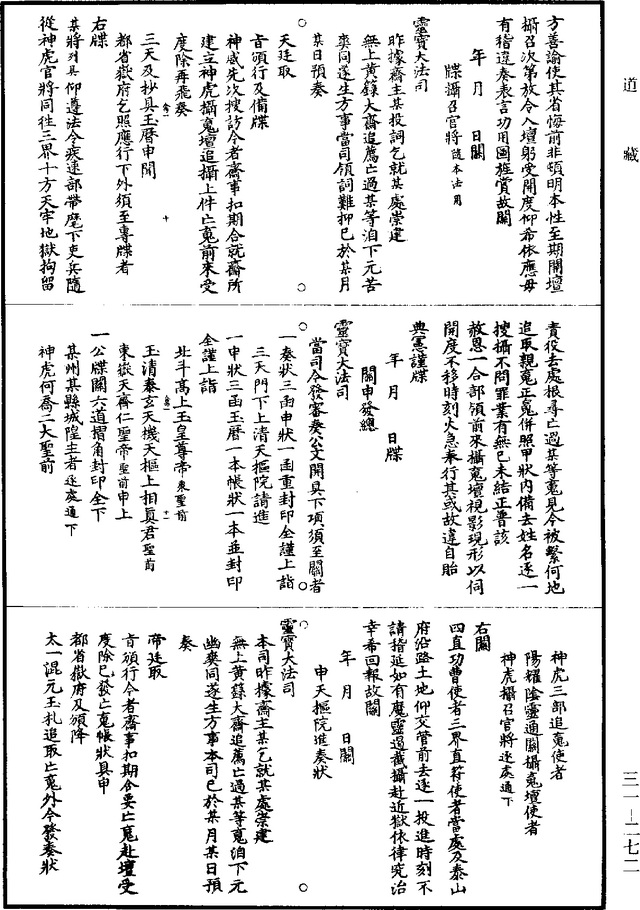 道藏
方善諭使其省悔前非頓明本性至期開壇
攝召次第放令入壇躬受開度仰希依應毋
有稽違奏表言功用圖旌賞故關
年　月　日關
牒攝召官將隨本法用
靈寶大法司
昨據齋主某投詞乞就某處崇建
無上黃籙大齋追薦亡過某等洎下元苦
爽同遂生方事當司領詞難抑已於某月
某日預奏
天廷取
旨頒行及備牒
神威先次搜訪今者齋事扣期合就齋所
建立神虎攝䰟壇追攝上件亡䰟前來受
度除再飛奏
三天及抄具玉曆申聞
都省嶽府乞照應行下外須至專牒者
右牒
某將列具仰遵法令疾速部帶麾下吏兵隨
從神虎官將同徃三界十方天牢地獄拘留
責役去處根尋亡過某等䰟見今被繫何地
追取親䰟正䰟併照甲狀內備去姓名逐一
搜攝不問罪業有無已未結正普該
赦恩一合部領前來攝䰟壇視影現形以伺
開度不移時刻火急奉行其或故違自貽
典憲謹牒
年　月　日牒
關申發總
靈寶大法司
當司今發審奏公文開具下項須至關者
一奏狀三函申狀一函重封印全謹上詣
三天門下上清天樞院請進
一申狀三函玉曆一本帳狀一本並封印
全謹上詣
北斗高上玉皇尊帝衆聖前
玉清泰玄天機天樞上相眞君聖前
東嶽天齊仁聖帝聖前申上
一公牒關六道摺角封印全下
某州某縣城隍主者逐處通下
神虎何喬二大聖前
神虎三部追䰟使者
陽耀陰靈通關攝䰟壇使者
神虎攝召官將逐處通下
右關
四直功曹使者三界直符使者當處及泰山
府沿路土地仰交管前去逐一投進時刻不
請稽延如有魔靈遏截攝赴近獄依律究治
幸希回報故關
年　月　日關
申天樞院進奏狀
靈寶大法司
本司昨據齋主某乞就某處崇建
無上黃籙大齋追薦亡過某等䰟洎下元
幽爽同遂生方事本司已於某月某日預
奏
帝廷取
旨頒行今者齋事扣期合要亡䰟赴壇受
度除已發亡䰟帳狀具申
都省嶽府及頒降
太一混元玉札追取亡䰟外今發奏狀
三一—二七二